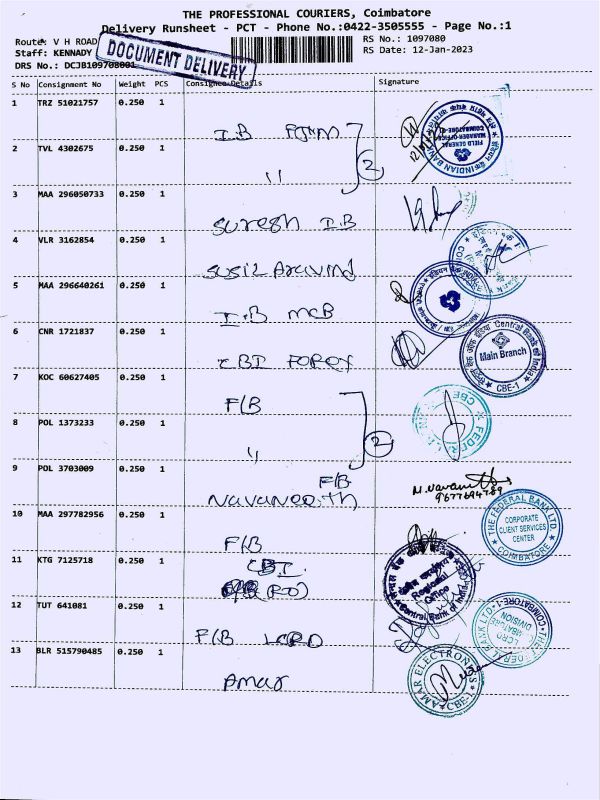 THE PROFESSIONAL COURIERS, Coimbatore
Delivery Runsheet - PCT - Phone No.:0422-3505555 - Page No.:1
Route: V H ROAD
RS No.: 1097080
Staff: KENNADY
RS Date: 12-Jan-2023
DRS No.: DCJB109708001
DOCUMENT DELIVERY
S No Consignment No Weight PCS Consignee Details Signature
1 TRZ 51021757 0.250 1
I.B
2 TVL 4302675 0.250 1
" 2
3 MAA 296050733 0.250 1
Suresh I.B
4 VLR 3162854 0.250 1
Susil Aravind
5 MAA 296640261 0.250 1
I.B MCB
6 CNR 1721837 0.250 1
CBI FOREX
7 KOC 60627405 0.250 1
F/B
8 POL 1373233 0.250 1
" 2
9 POL 3703009 0.250 1
F/B
Navaneeth
10 MAA 297782956 0.250 1
F/B
11 KTG 7125718 0.250 1
CBI
(RO)
12 TUT 641081 0.250 1
F/B LCRD
13 BLR 515790485 0.250 1
Amar
INDIAN BANK
FIELD GENERAL
MANAGER OFFICE
COIMBATORE
Central Bank of India
Main Branch
CBE-1
FEDERAL
CBE
9677694789
THE FEDERAL BANK LTD.
CORPORATE
CLIENT SERVICES
CENTER
COIMBATORE
Regional
Office
Central Bank of India
THE FEDERAL BANK LTD
LCRD
DIVISION
COIMBATORE-1
AMAR ELECTRONICS
CBE-1